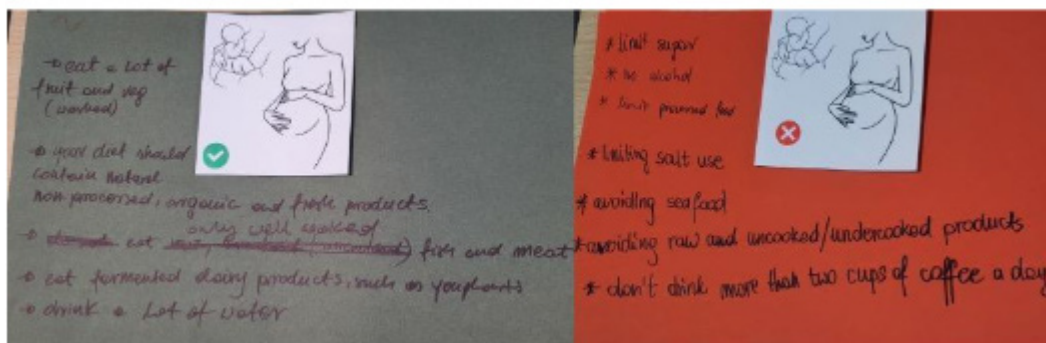 → eat a lot of
fruit and veg
(washed)
→ your diet should
contain natural
non-processed, organic and fresh products.
only well cooked
→ eat fish and meat
→ eat fermented dairy products, such as
→ drink a lot of water
* limit sugar
* no alcohol
* limit processed food
* limiting salt use
* avoiding seafood
* avoiding raw and uncooked/undercooked products
* don't drink more than two cups of coffee a day